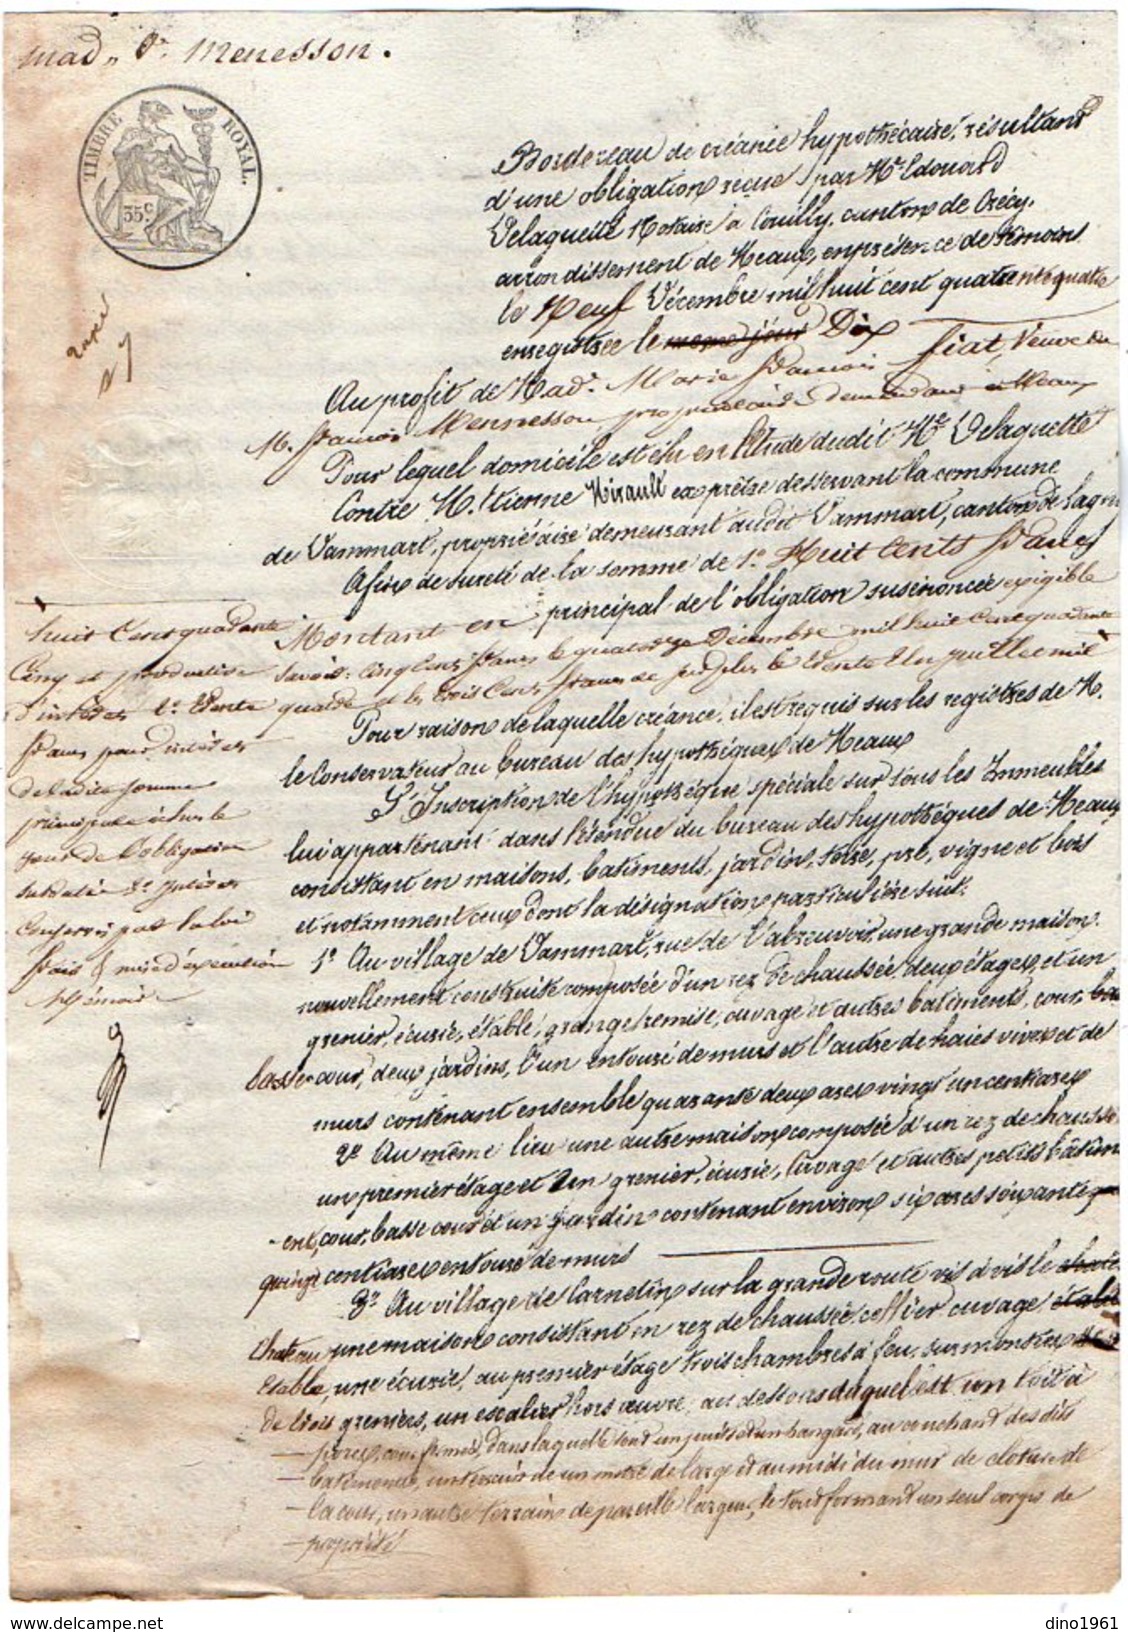 Mad. Ve Menesson.
TIMBRE ROYAL.
35 c
Bordereau de créance hypothécaire, résultant
d'une obligation reçue par Me Edouard
Delaguette Notaire à Couilly, canton de Crécy,
arrondissement de Meaux, en présence de témoins
le Neuf Décembre mil huit cent quarante quatre
enregistrée le meme jour Dix
Au profit de Made Marie françoise fiat, Veuve de
M. françois Mennesson, propriétaire demeurant à Meaux
Pour lequel domicile est élu en l'Etude dudit Me Delaguette
Contre M. Etienne Hirault ex prêtre desservant la commune
de Dammart, propriétaire demeurant audit Dammart, canton de Lagny
Afin de sureté de la somme de 1° Huit Cents francs
Montant en principal de l'obligation susénoncée exigible
savoir: cinq cents francs le quatorze Décembre mil huit cent quarante
quatre et les trois cents francs de surplus le trente un juillet mil
huit cent quarante
cinq et production
d'intérêts 2° trente
francs pour intérêts
de ladite somme
principale échus le
jour de l'obligation
3° intérêts
conservés par la loi
frais & mise d'exécution
Mémoire
Pour raison de laquelle créance, il est requis sur les registres de M.
le Conservateur au bureau des hypothéques de Meaux
L'Inscription de l'hypothéque spéciale sur tous les Immeubles
lui appartenant dans l'étendue du bureau des hypothéques de Meaux
consistant en maisons, batiments, jardins, terre, pré, vigne et bois
et notamment ceux dont la désignation particulière suit.
1° Au village de Dammart, rue de l'abreuvoir, une grande maison
nouvellement construite composée d'un rez de chaussée, deux étages, et un
grenier, écurie, étable, grange, remise, cuvage et autres batiments, cour,
basse cour, deux jardins, l'un entouré de murs et l'autre de haies vives et de
murs contenant ensemble quarante deux ares vingt un centiares
2° Au même lieu une autre maison composée d'un rez de chaussée
un premier étage et un grenier, écurie, cuvage et autres petits bâtim
ent, cour, basse cour et un jardin contenant environ six ares soixante
quinze centiares entouré de murs
3° Au village de Carnetin sur la grande route vis à vis le
chateau une maison consistant en rez de chaussée cellier cuvage
Etable, une écurie, au premier étage trois chambres à feu, surmontées
de trois greniers, un escalier hors œuvre, au dessous duquel est un toit à
porcs, cour fermée, dans laquelle sont un puits et un hangard, au couchant des dits
batiments, un terrain de un mètre de large et au midi du mur de cloture de
la cour, un autre terrain de pareille largeur, le tout formant un seul corps de
propriété
www.delcampe.net
dino1961